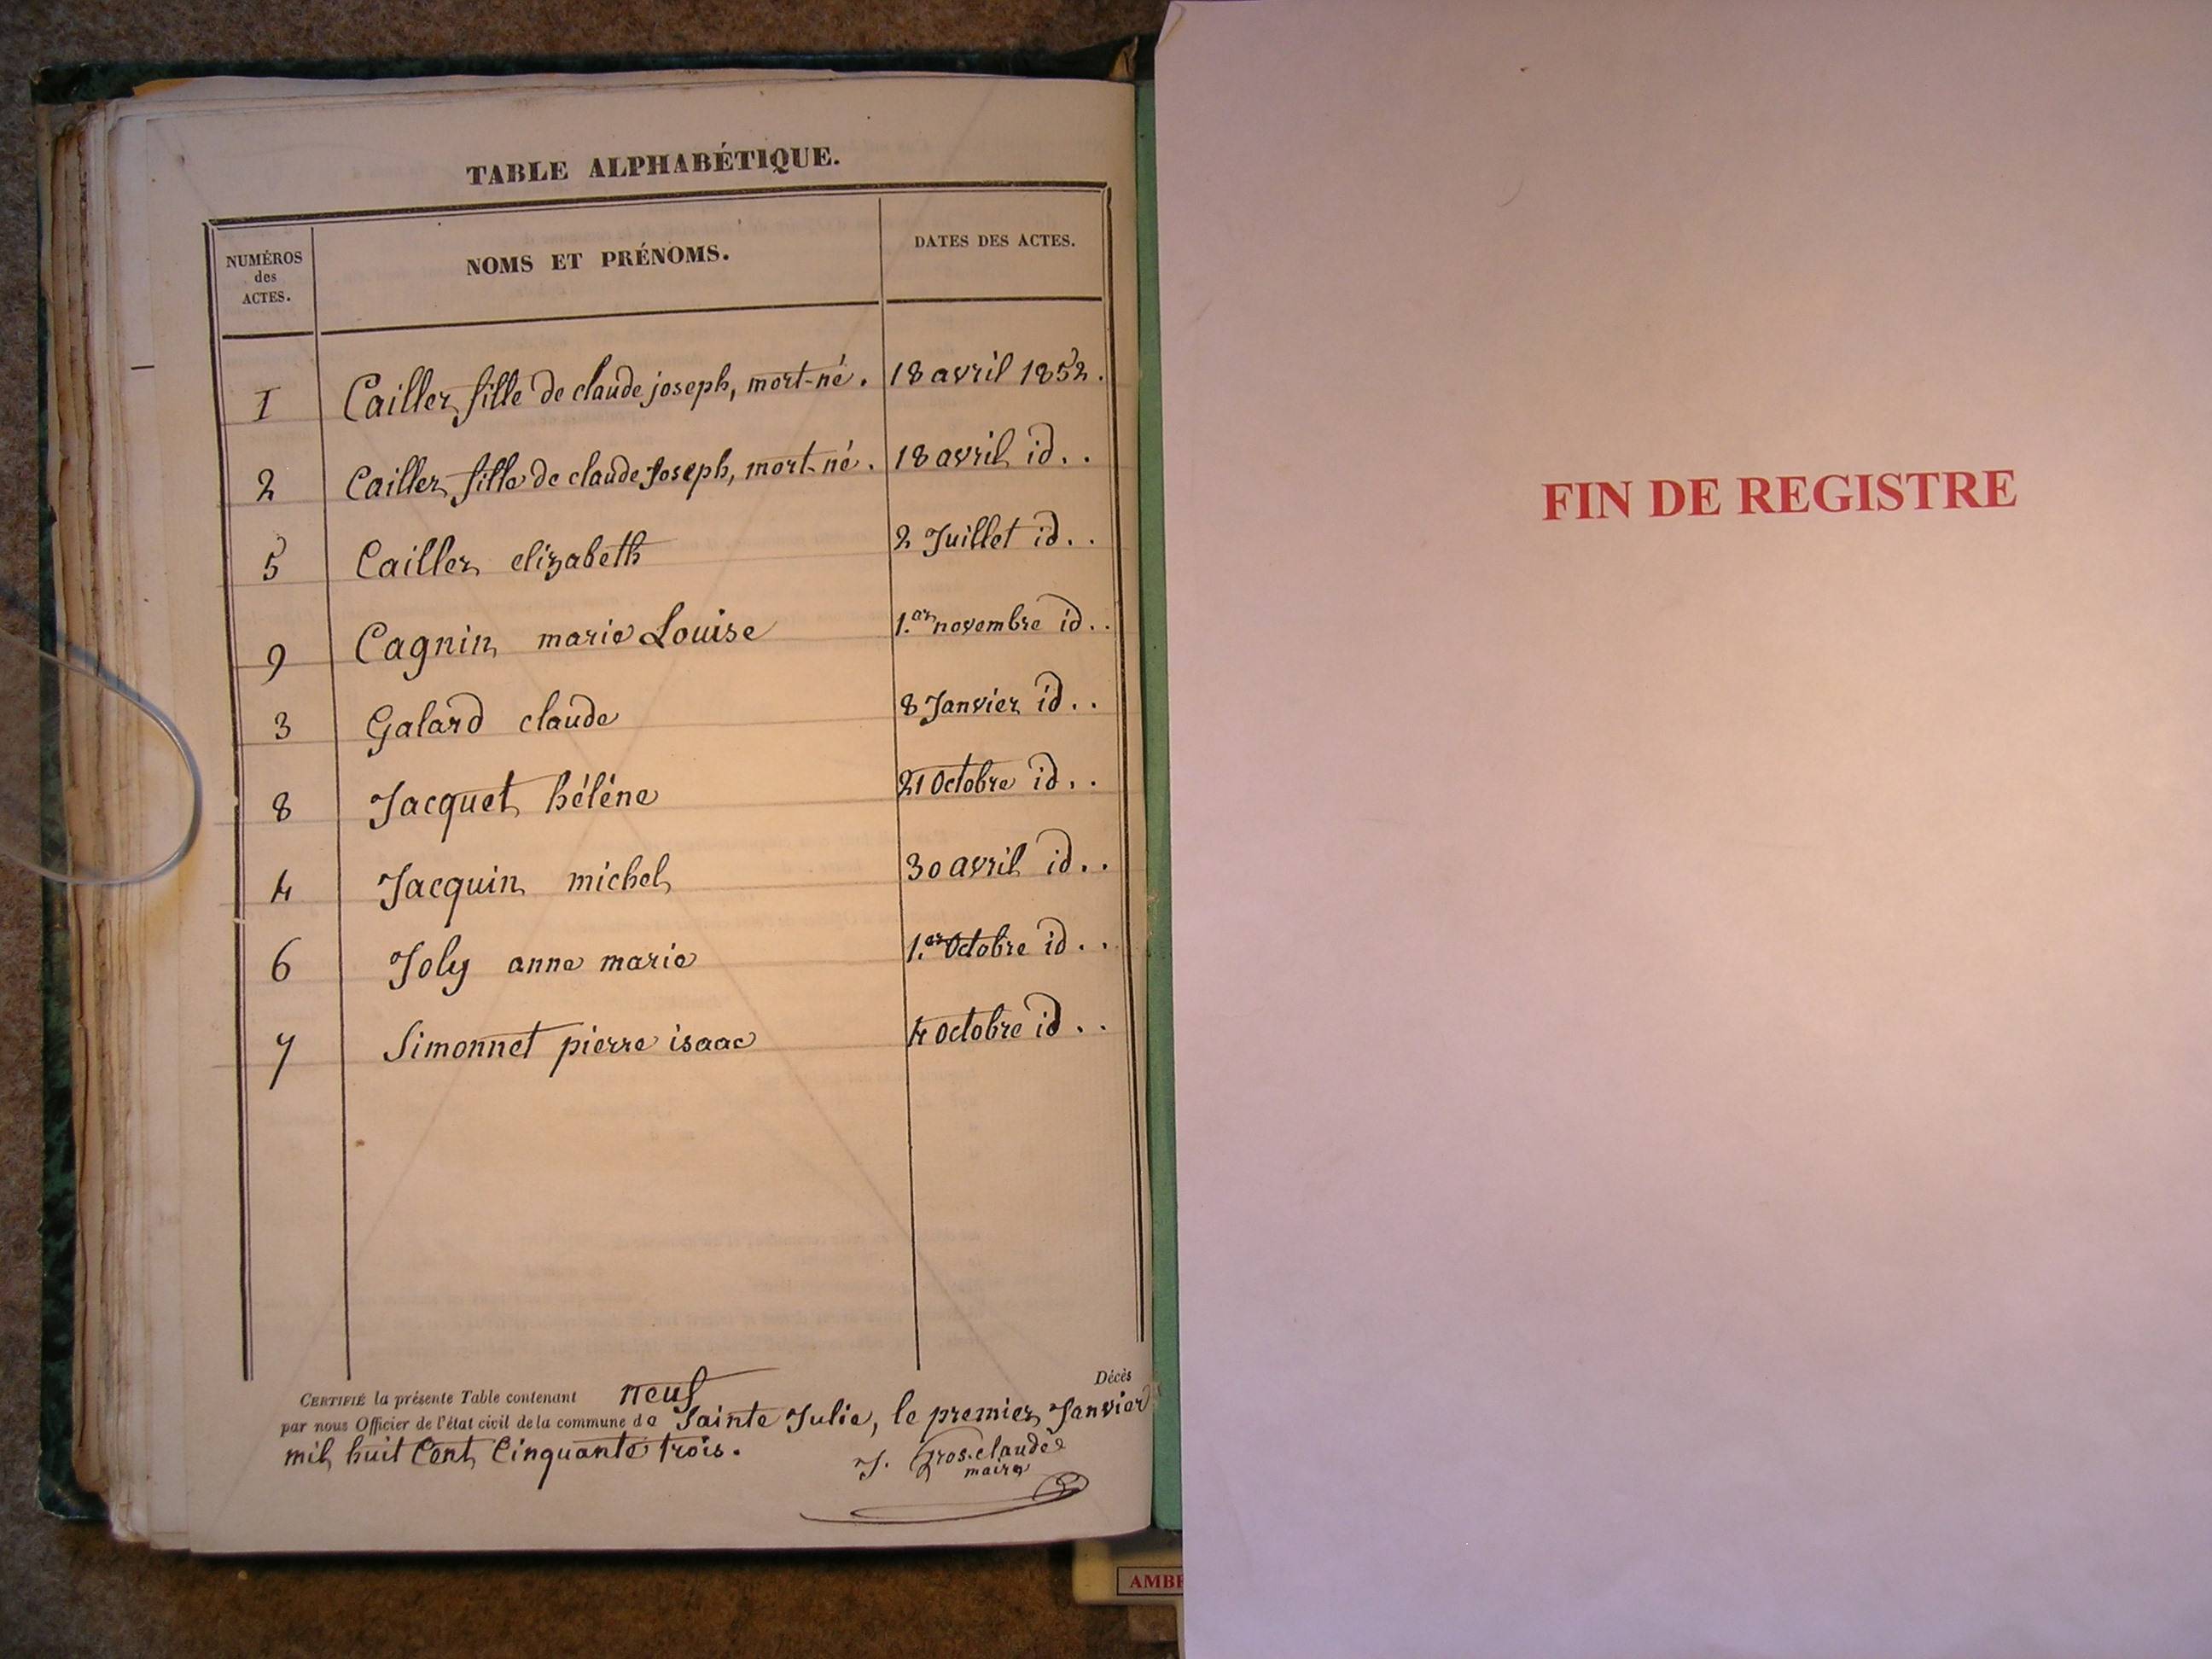 TABLE ALPHABÉTIQUE.
NUMÉROS des ACTES. NOMS ET PRÉNOMS. DATES DES ACTES.
1 Caillez fille de claude joseph, mort-né. 18 avril 1852.
2 Caillez fille de claude Joseph, mort-né. 18 avril id..
5 Caillez elizabeth 2 Juillet id..
9 Cagnin marie Louise 1.er novembre id..
3 Galard claude 8 Janvier id..
8 Jacquet hélène 21 Octobre id..
4 Jacquin michel 30 avril id..
6 Joly anne marie 1.er Octobre id..
7 Simonnet pierre isaac 4 octobre id..
CERTIFIÉ la présente Table contenant neuf Décès
par nous Officier de l'état civil de la commune de Sainte Julie, le premier Janvier
mil huit Cent Cinquante trois.
J. Gros.claude
maire
FIN DE REGISTRE